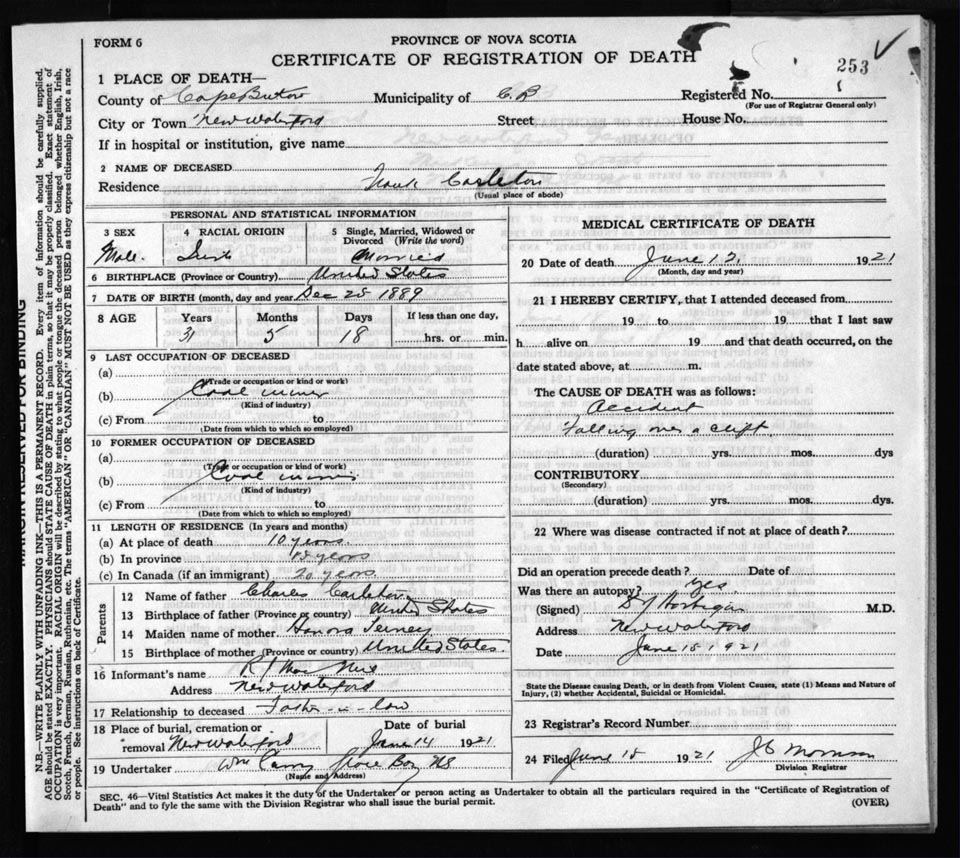 FORM 6
PROVINCE OF NOVA SCOTIA
CERTIFICATE OF REGISTRATION OF DEATH
253
1 PLACE OF DEATH—
County of Cape Breton Municipality of C.B Registered No.
(For use of Registrar General only)
City or Town New Waterford Street House No.
If in hospital or institution, give name
2 NAME OF DECEASED Frank Carleton
Residence (Usual place of abode)
PERSONAL AND STATISTICAL INFORMATION
3 SEX 4 RACIAL ORIGIN 5 Single, Married, Widowed or Divorced (Write the word)
Male. Irish Married
6 BIRTHPLACE (Province or Country) United States
7 DATE OF BIRTH (month, day and year Dec 25 1889
8 AGE Years Months Days If less than one day,
31 5 18 hrs. or min.
9 LAST OCCUPATION OF DECEASED
(a)
(Trade or occupation or kind or work)
(b) Coal miner
(Kind of industry)
(c) From to
(Date from which to which so employed)
10 FORMER OCCUPATION OF DECEASED
(a)
(Trade or occupation or kind of work)
(b) Coal miner
(Kind of industry)
(c) From to
(Date from which to which so employed)
11 LENGTH OF RESIDENCE (In years and months)
(a) At place of death 10 years.
(b) In province years
(c) In Canada (if an immigrant) 20 years
Parents
12 Name of father Charles Carleton
13 Birthplace of father (Province or country) United States
14 Maiden name of mother. Honora
15 Birthplace of mother (Province or country) United States.
16 Informant's name
Address New Waterford
17 Relationship to deceased Father-in-law
18 Place of burial, cremation or removal New Waterford Date of burial June 14 1921
19 Undertaker Wm Glace Bay NS
(Name and Address)
MEDICAL CERTIFICATE OF DEATH
20 Date of death June 12, 1921
(Month, day and year)
21 I HEREBY CERTIFY, that I attended deceased from
19 to 19 that I last saw
h alive on 19 and that death occurred, on the
date stated above, at m.
The CAUSE OF DEATH was as follows:
Accident
Falling over a clift
(duration) yrs. mos. dys
CONTRIBUTORY
(Secondary)
(duration) yrs. mos. dys.
22 Where was disease contracted if not at place of death?
Did an operation precede death? Date of
Was there an autopsy? Yes
(Signed) M.D.
Address New Waterford
Date June 15, 1921
State the Disease causing Death, or in death from Violent Causes, state (1) Means and Nature of
Injury, (2) whether Accidental, Suicidal or Homicidal.
23 Registrar's Record Number
24 Filed June 15 1921
Division Registrar
SEC. 46—Vital Statistics Act makes it the duty of the Undertaker or person acting as Undertaker to obtain all the particulars required in the "Certificate of Registration of
Death" and to fyle the same with the Division Registrar who shall issue the burial permit. (OVER)
MARGIN RESERVED FOR BINDING
N.B.—WRITE PLAINLY WITH UNFADING INK—THIS IS A PERMANENT RECORD. Every item of information should be carefully supplied.
AGE should be stated EXACTLY. PHYSICIANS should STATE CAUSE OF DEATH in plain terms, so that it may be properly classified. Exact statement of
OCCUPATION is very important. RACIAL ORIGIN will be described by stating to what people or tongue the deceased person belonged whether English, Irish,
Scotch, French, German, Russian, Ruthenian, etc. The terms "AMERICAN" OR "CANADIAN" MUST NOT BE USED as they express citizenship but not a race
or people. See instructions on back of Certificate.